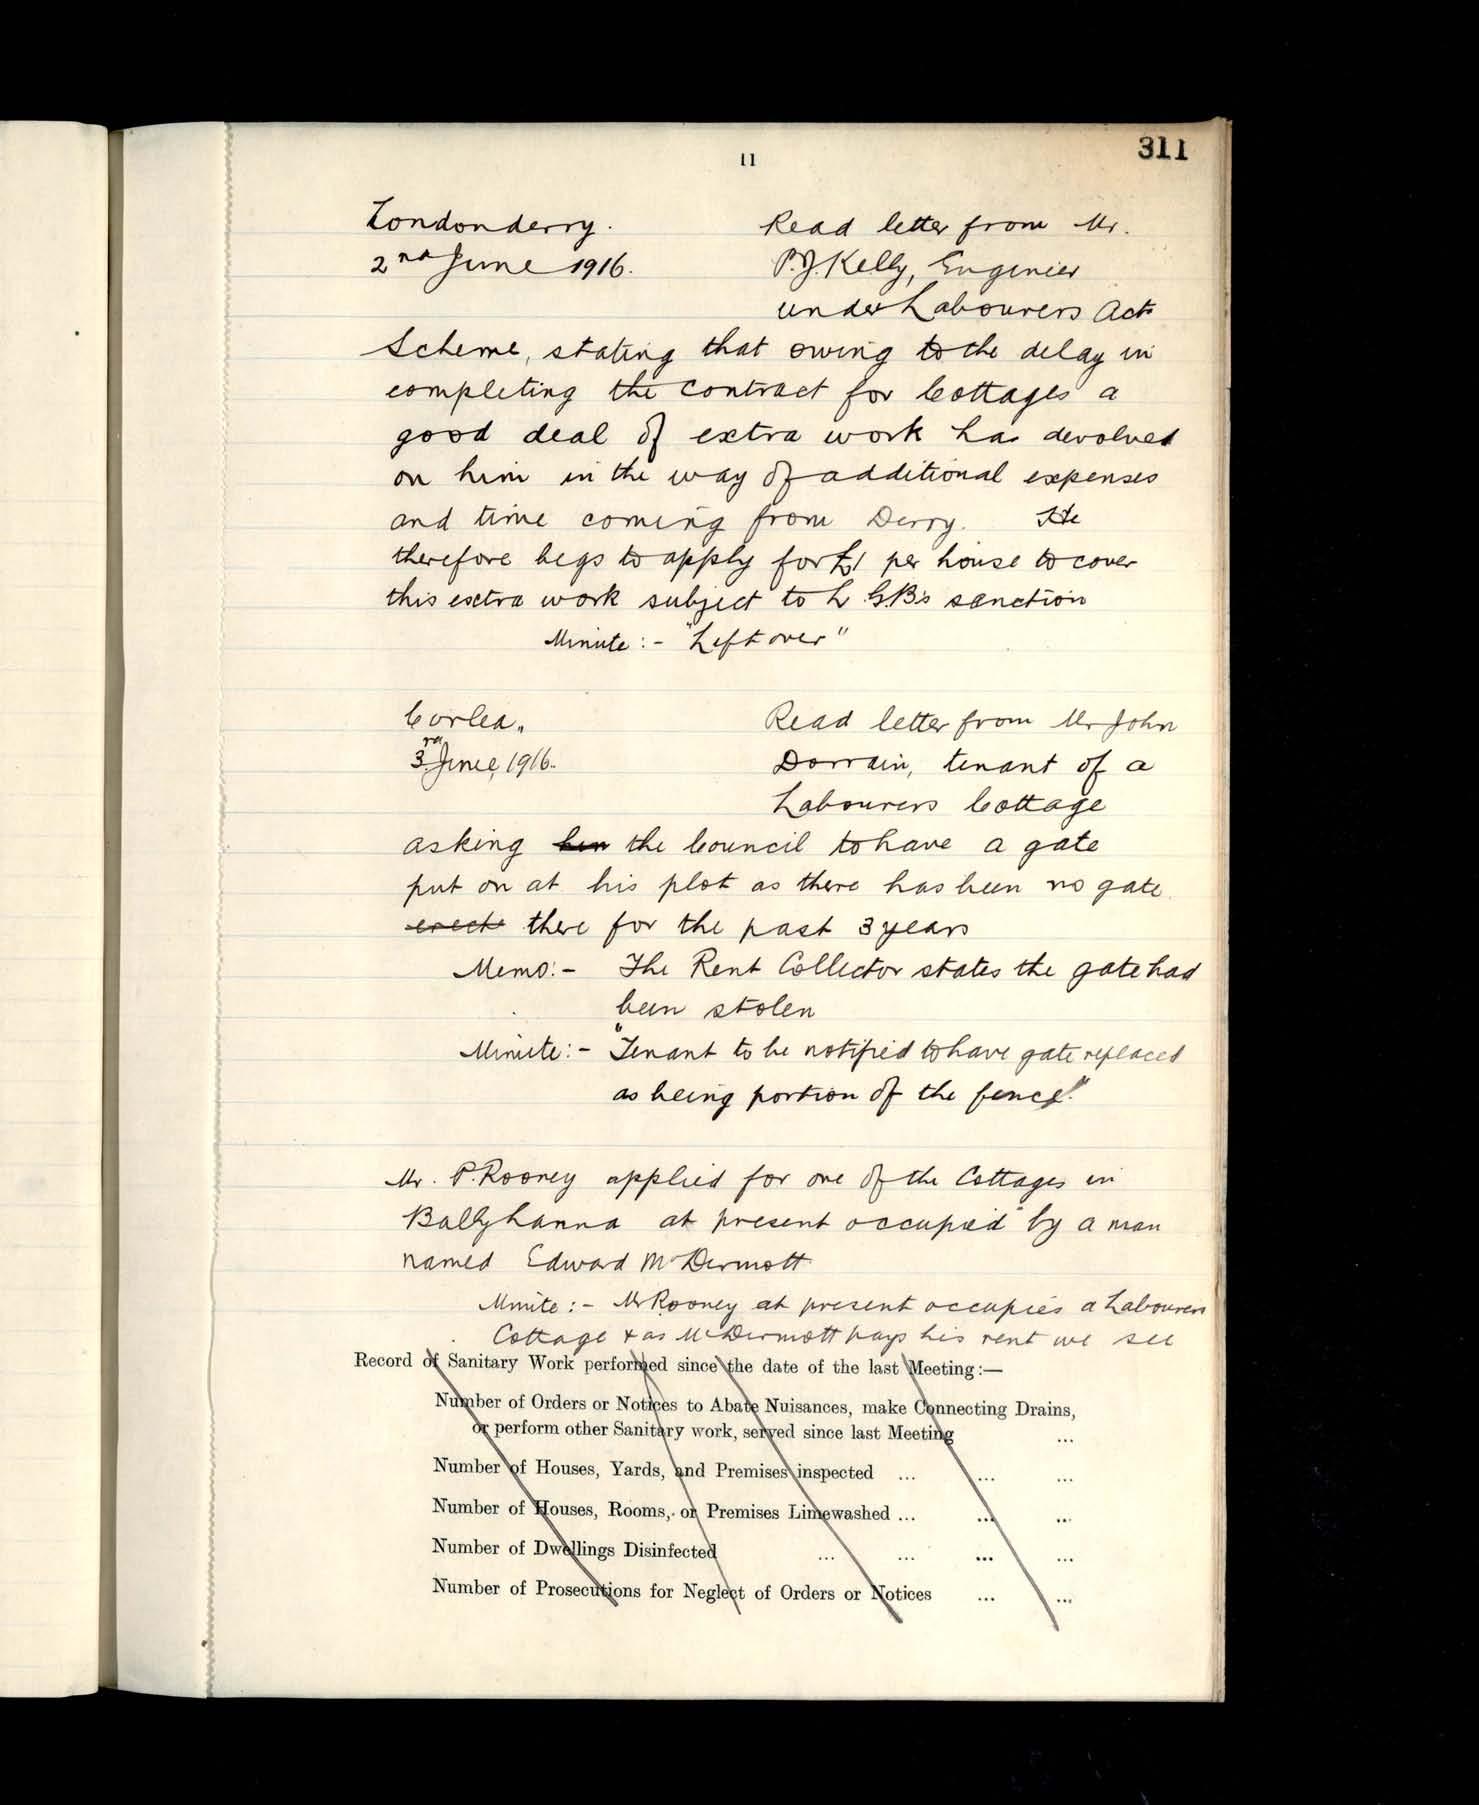 311
11
Londonderry. Read letter from Mr.
2nd June 1916. P.J. Kelly, Enginier
under Labourers Acts
Scheme, stating that owing to the delay in
completing the contract for Cottages a
good deal of extra work has devolved
on him in the way of additional expenses
and time coming from Derry. He
therefore begs to apply for £1 per house to cover
this extra work subject to L.G.B's sanction
Minute :- "Left over"
Corlea, Read letter from Mr John
3rd June, 1916. Dorrain, tenant of a
Labourers Cottage
asking the Council to have a gate
put on at his plot as there has been no gate
erect there for the past 3 years
Memo :- The Rent Collector states the gate had
been stolen
Minute :- "Tenant to be notified to have gate replaced
as being portion of the fence."
Mr. P. Rooney applied for one of the Cottages in
Ballyhanna at present occupied by a man
named Edward McDermott
Minute :- Mr Rooney at present occupies a Labourers
Cottage & as McDermott pays his rent we see
Record of Sanitary Work performed since the date of the last Meeting :—
Number of Orders or Notices to Abate Nuisances, make Connecting Drains,
or perform other Sanitary work, served since last Meeting ...
Number of Houses, Yards, and Premises inspected ... ... ...
Number of Houses, Rooms, or Premises Limewashed ... ... ...
Number of Dwellings Disinfected ... ... ... ...
Number of Prosecutions for Neglect of Orders or Notices ... ...